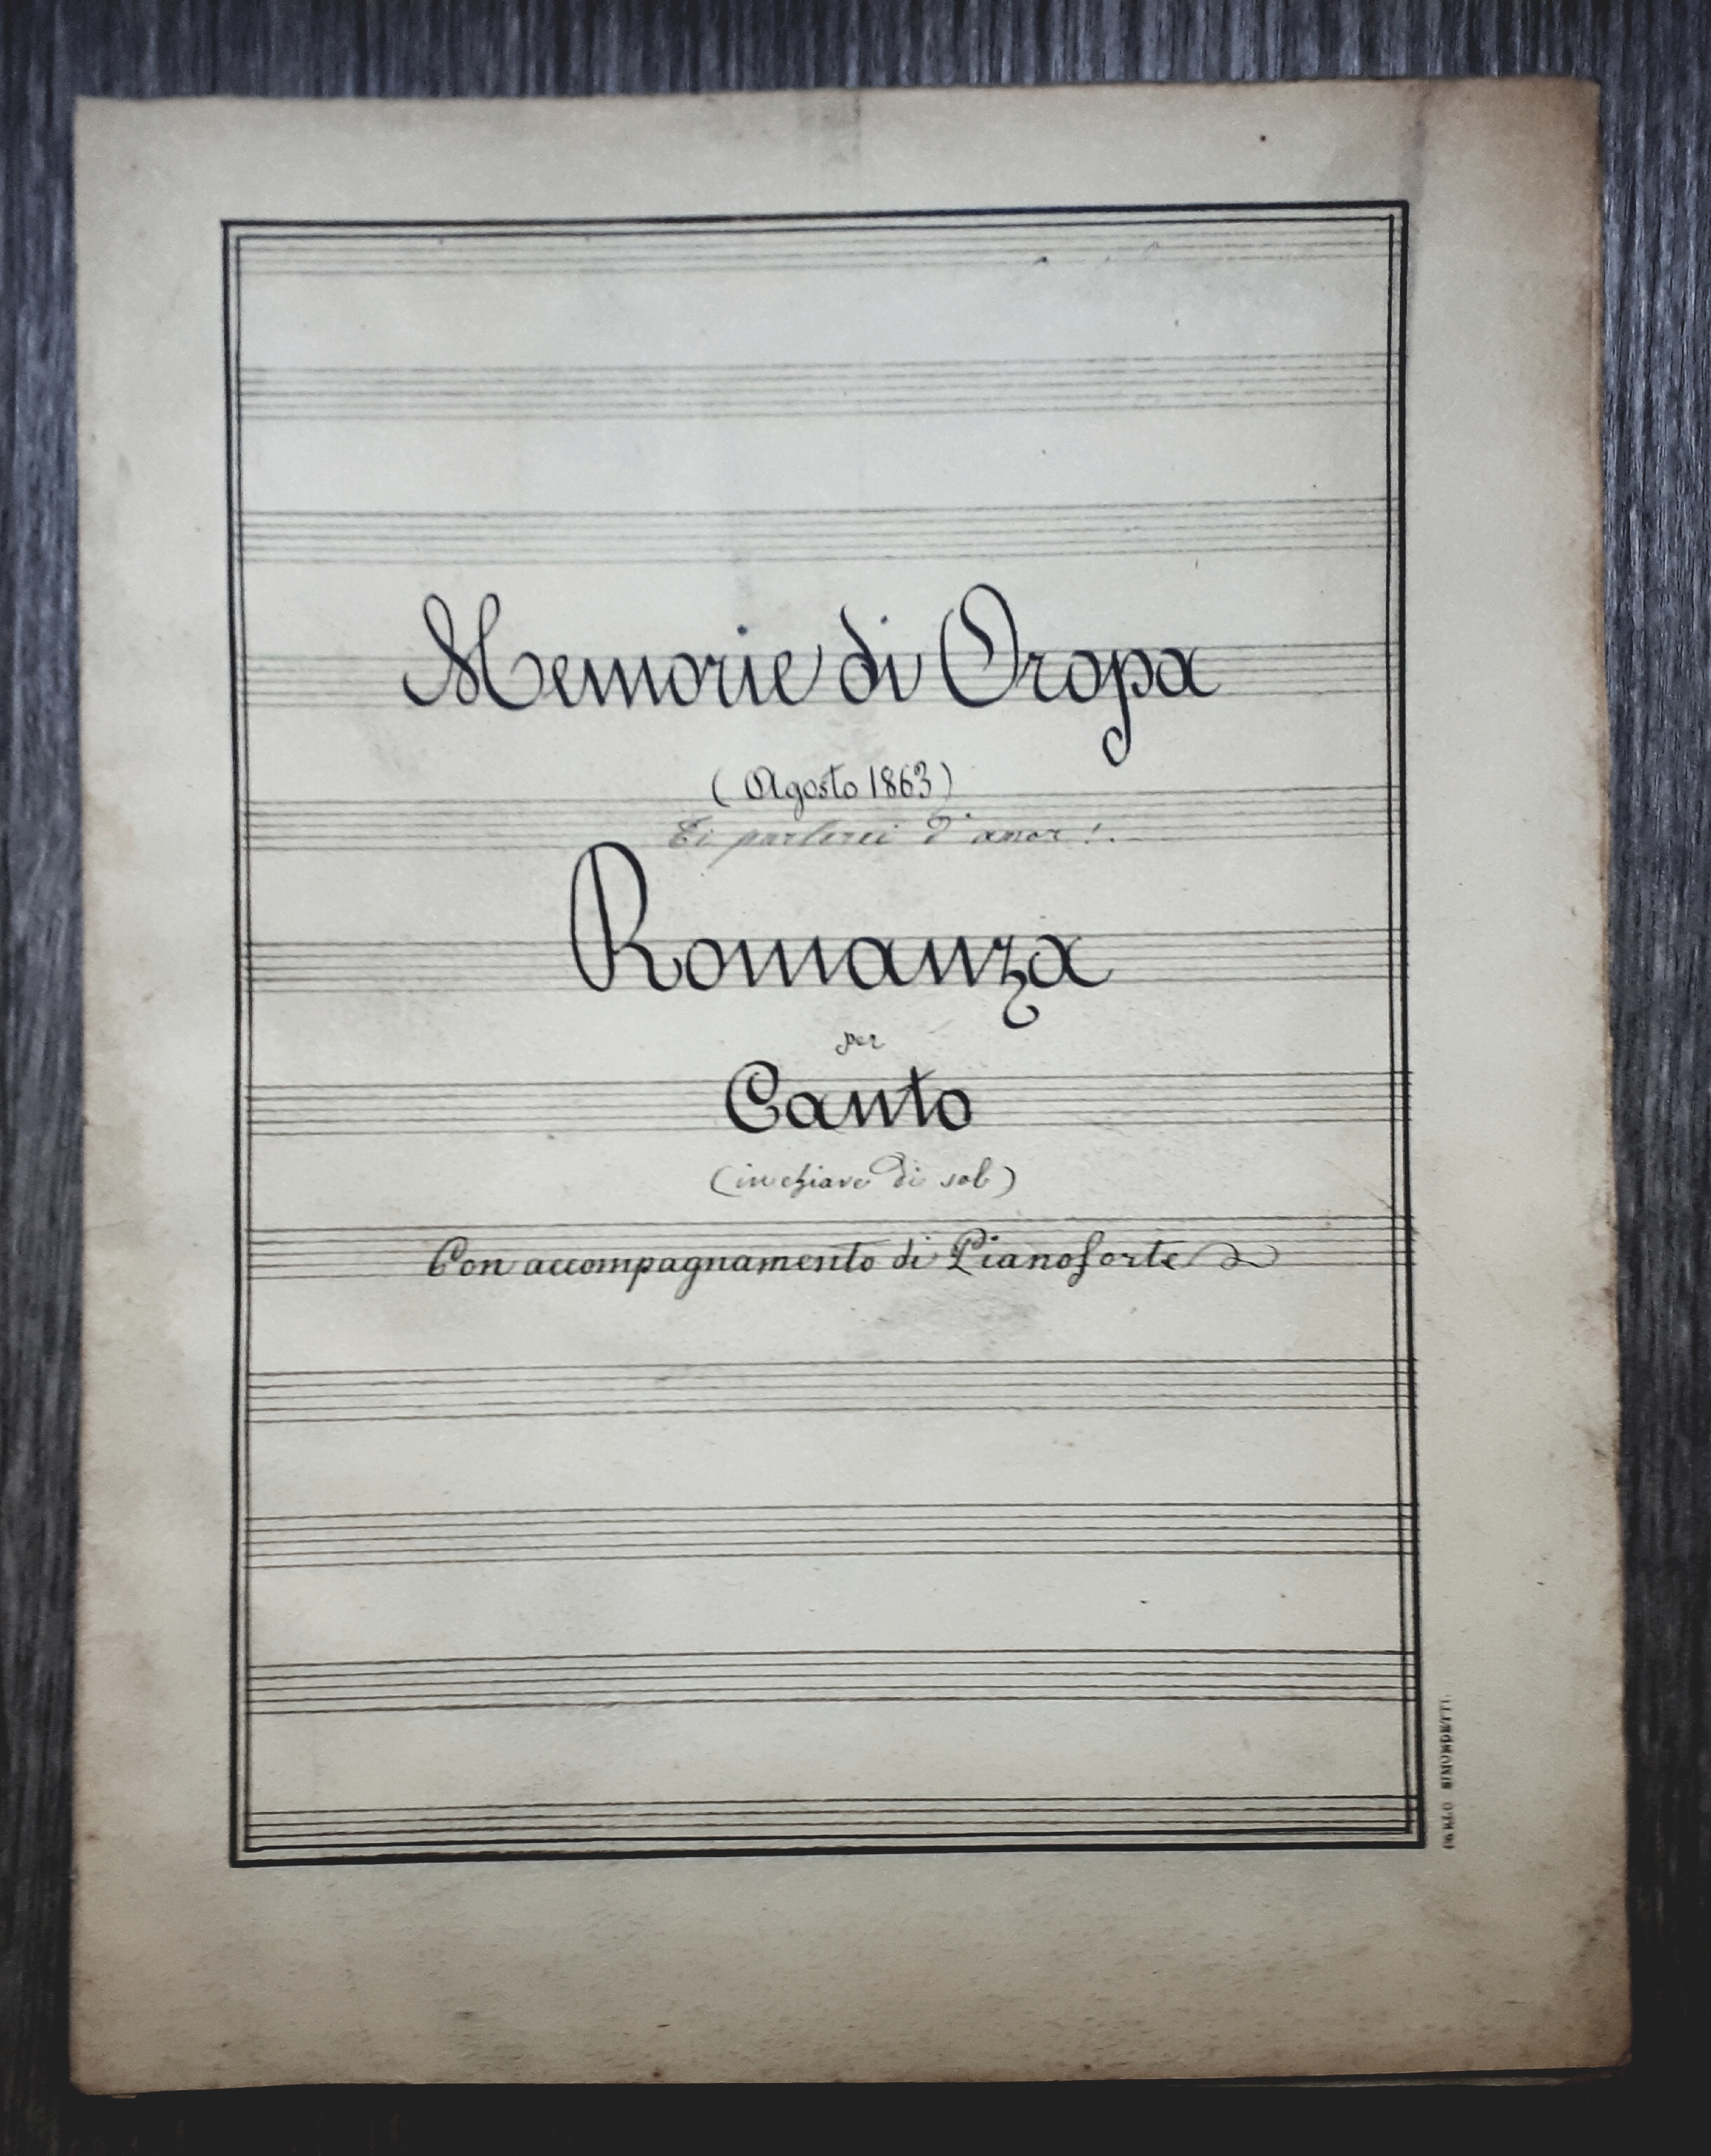 Memorie di Oropa
(Agosto 1863)
Ti parlerei d'amor!.
Romanza
per
Canto
(in chiave di sol)
Con accompagnamento di Pianoforte
CARLO SIMONDETTI.